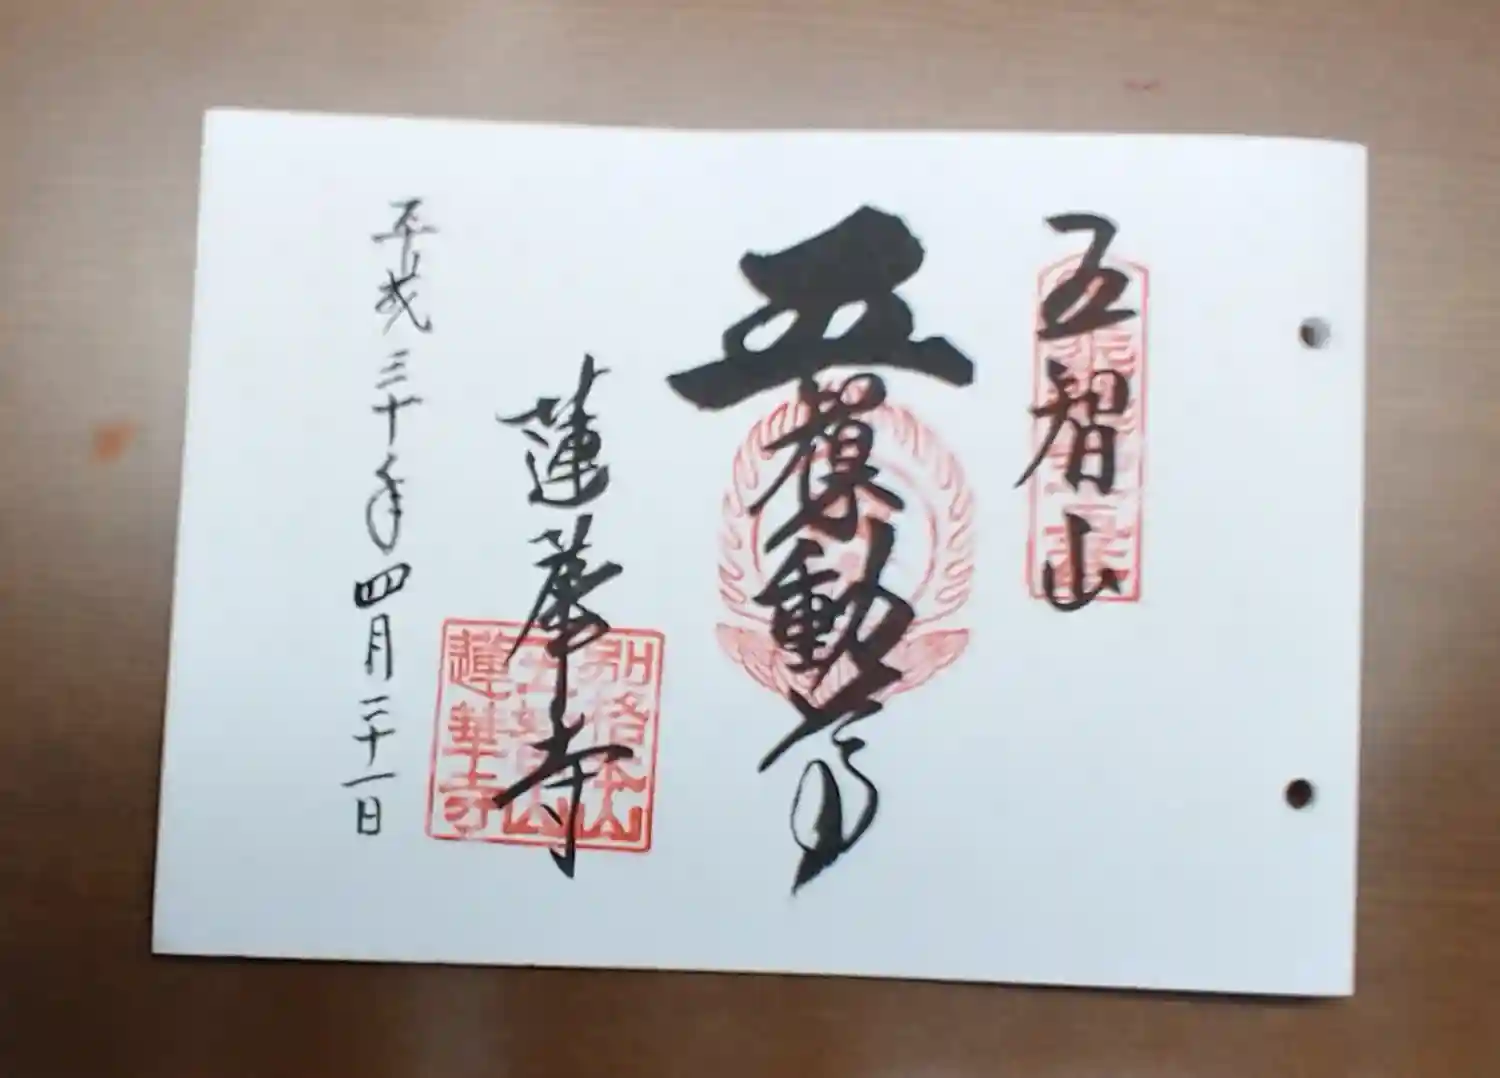 五智山
五動尊
蓮華寺
別格本山
五智山
蓮華寺
平成三十年四月二十一日